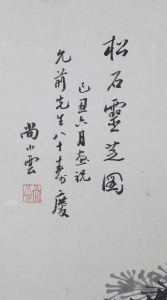 松石靈芝圖
己丑六月畫祝
允前先生八十壽慶
尚小雲